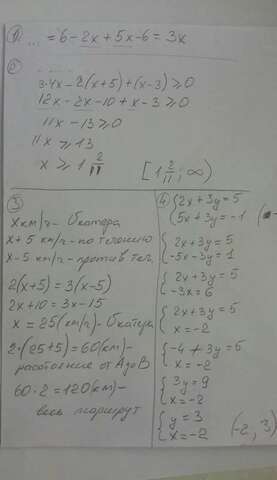 ① ... = 6 - 2x + 5x - 6 = 3x
②
3·4x - 2(x+5) + (x-3) ≥ 0
12x - 2x - 10 + x - 3 ≥ 0
11x - 13 ≥ 0
11x ≥ 13
x ≥ 1 2/11 [1 2/11; ∞)
③
x км/ч - Vкатера
x + 5 км/ч - по течению
x - 5 км/ч - против теч.
2(x+5) = 3(x-5)
2x + 10 = 3x - 15
x = 25 (км/ч) - Vкатера
2·(25+5) = 60 (км) -
расстояние от A до B
60·2 = 120 (км) -
весь маршрут
④ {2x + 3y = 5
{5x + 3y = -1
{2x + 3y = 5
{-5x - 3y = 1
{2x + 3y = 5
{-3x = 6
{2x + 3y = 5
{x = -2
{-4 + 3y = 5
{x = -2
{3y = 9
{x = -2
{y = 3
{x = -2 (-2; 3)